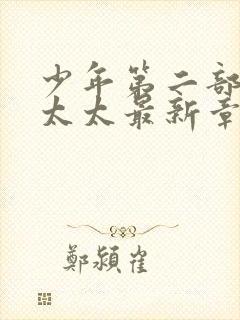 少年第二部
太太最新章
鄭潁崔